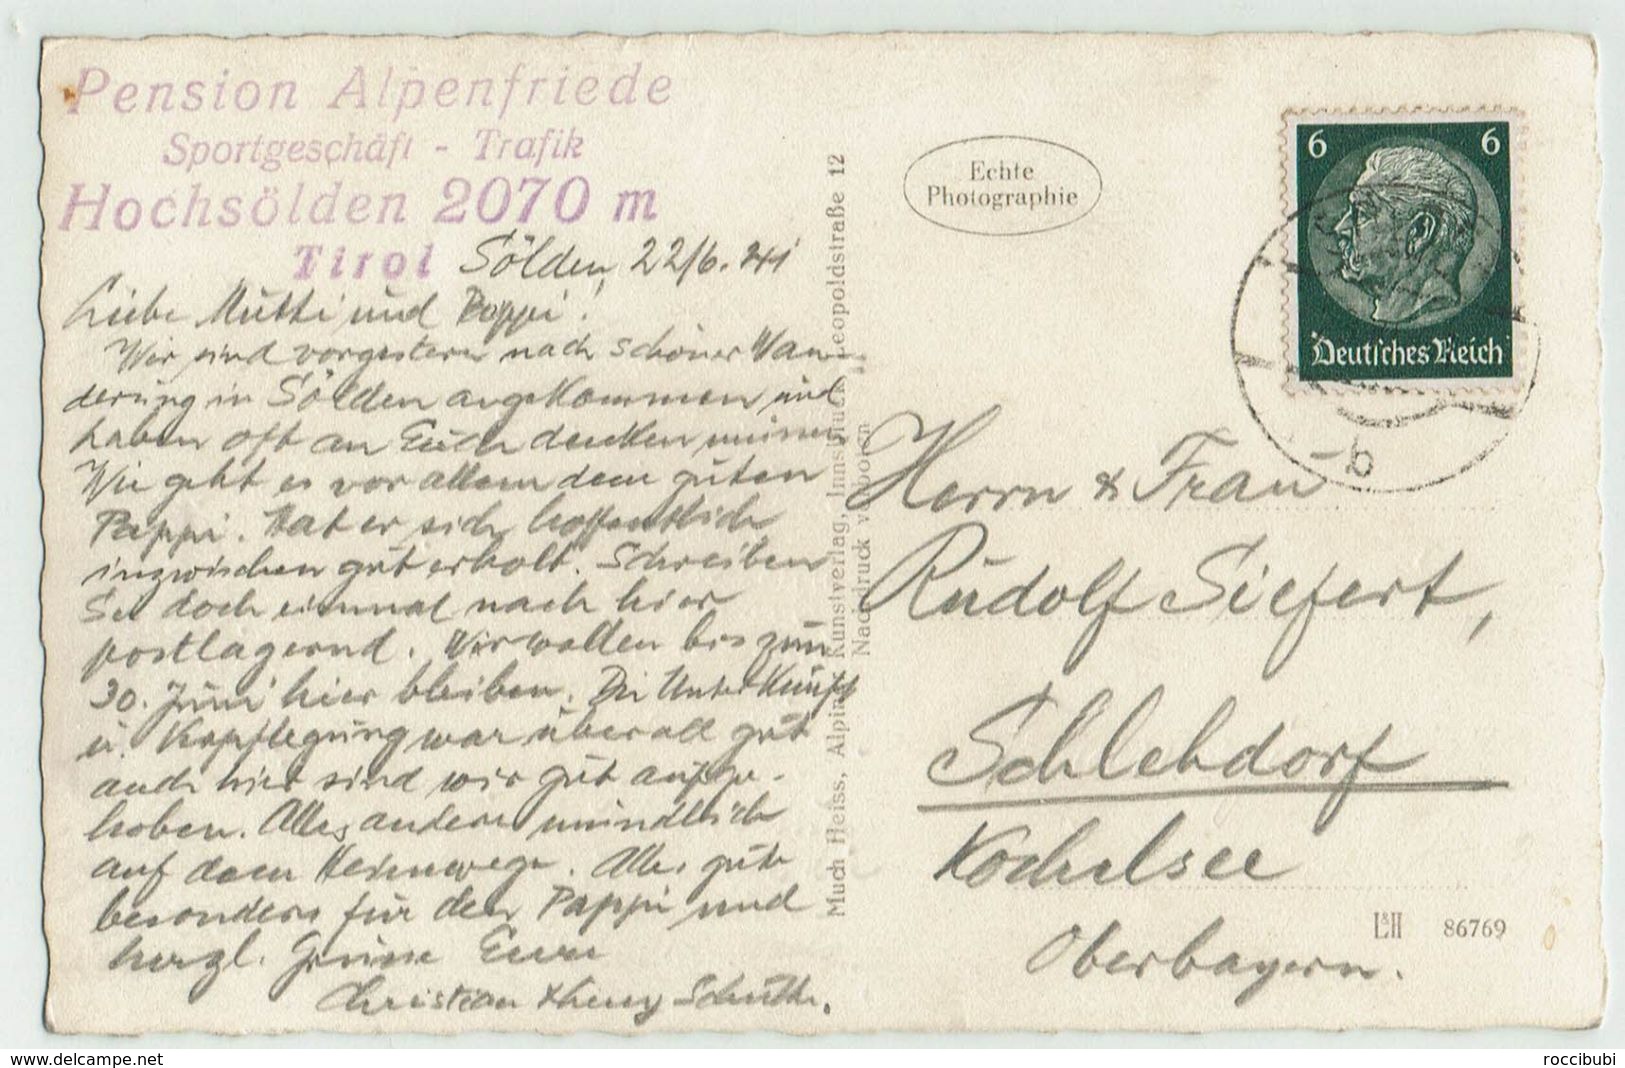 Pension Alpenfriede
Sportgeschäft - Trafik
Hochsölden 2070 m
Tirol
Sölden, 22/6. 41
Liebe Mutti und Pappi!
Wir sind vorgestern nach schöner Wan-
derung in Sölden angekommen und
haben oft an Euch denken müssen
Wie geht es vor allem dem guten
Pappi. Hat er sich hoffentlich
inzwischen gut erholt. Schreiben
Sie doch einmal nach hier
postlagernd. Wir wollen bis zum
30. Juni hier bleiben. Die Unterkunft
u. Verpflegung war überall gut
auch hier sind wir gut aufge-
hoben. Alles andere mündlich
auf dem Heimwege. Alles gute
besonders für den Pappi und
herzl. Grüsse Eure
Christian &
Much Heiss, Alpiner Kunstverlag, Innsbruck, Leopoldstraße 12
Nachdruck verboten
Echte
Photographie
6 6
Deutsches Reich
b
Herrn & Frau
Rudolf Siefert,
Schlehdorf
Kochelsee
Oberbayern.
L&H 86769
www.delcampe.net
roccibubi